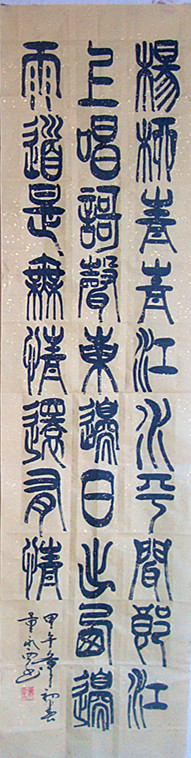 楊柳青青江水平聞郎江
上唱謌聲東邊日出西邊
雨道是無情還有情
甲午年初春